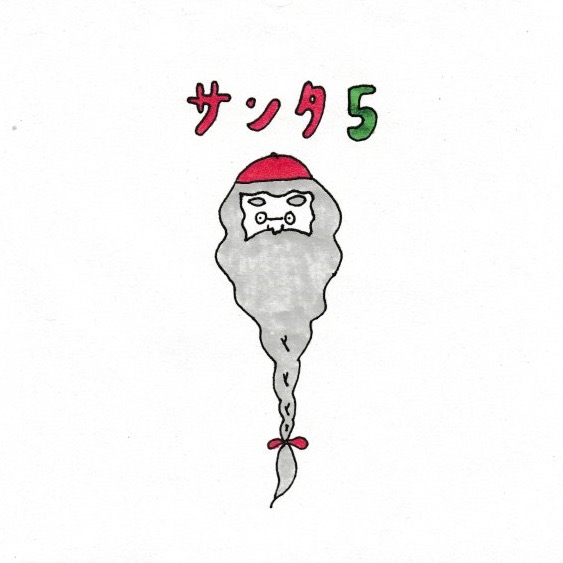 サンタ5